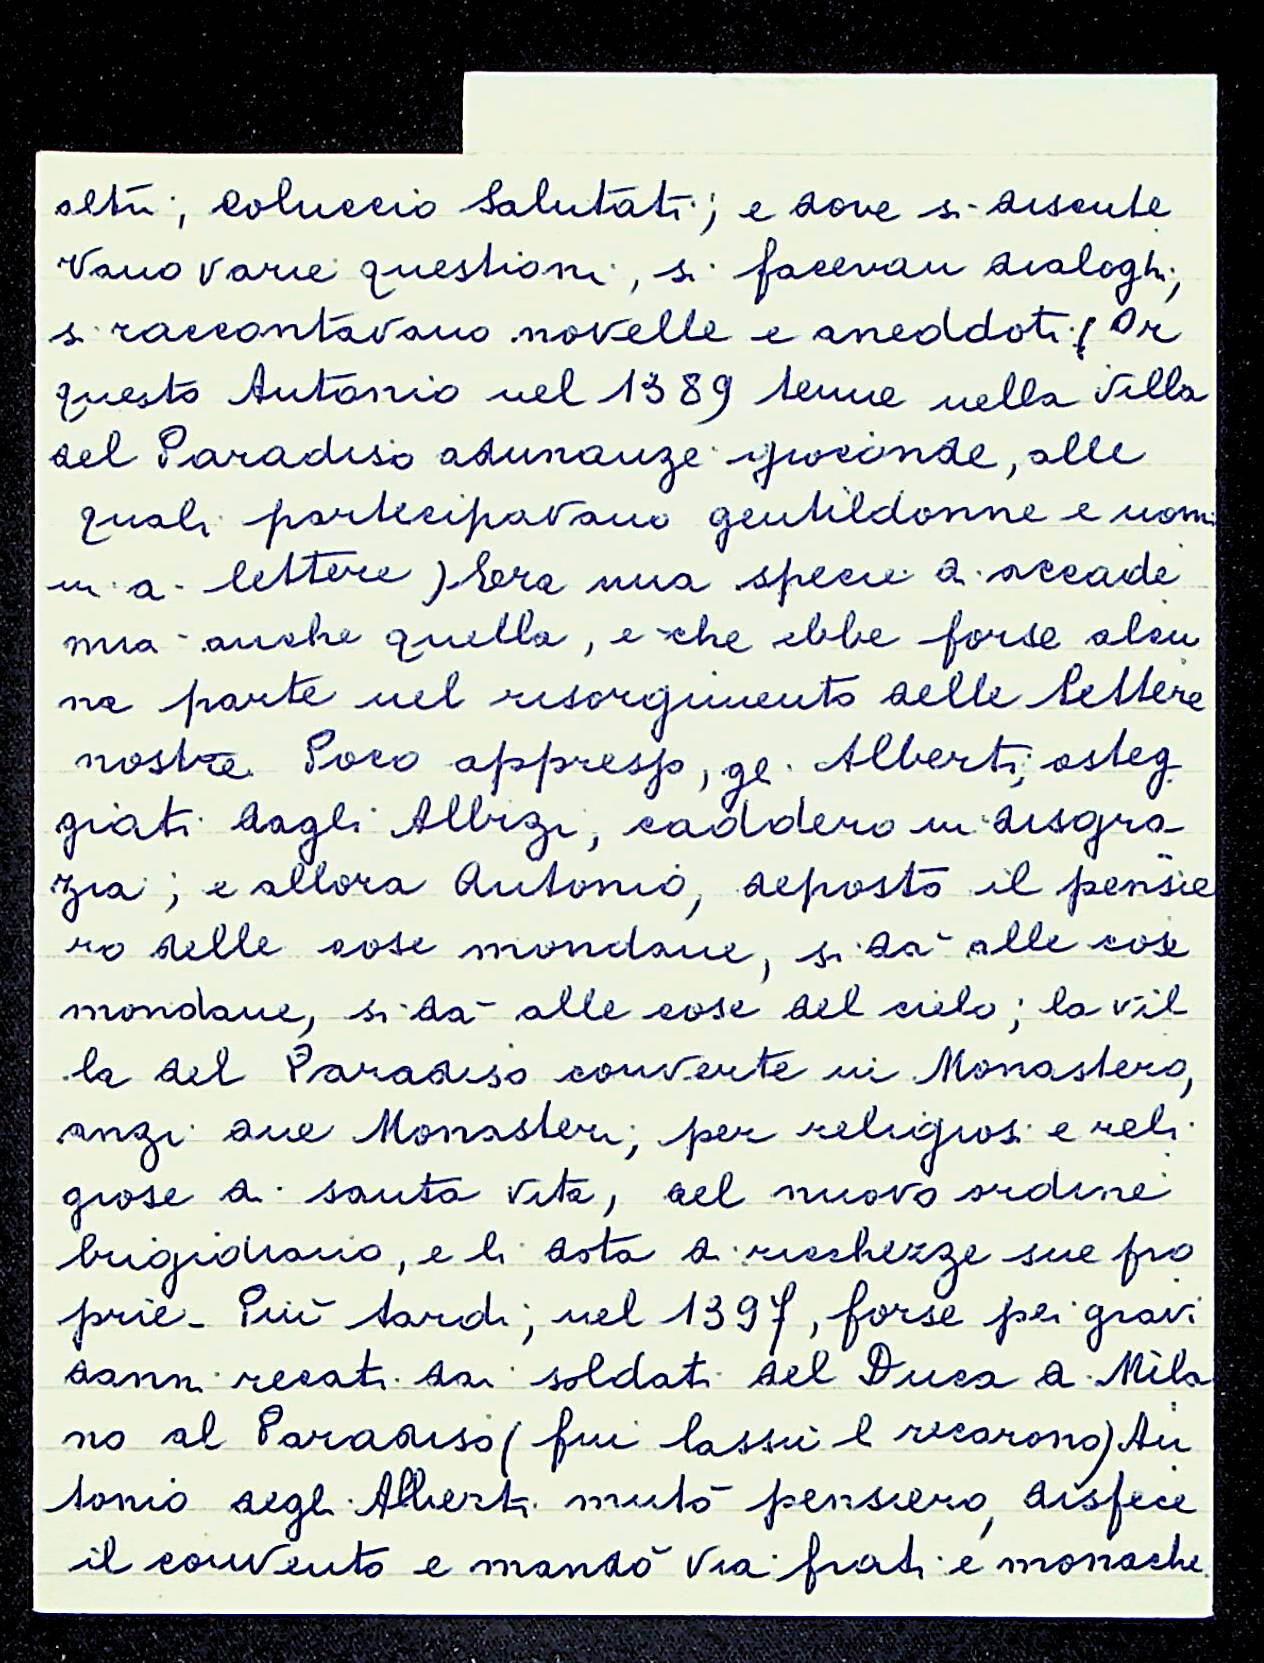 altri, Coluccio Salutati; e dove si discute
vano varie questioni, si facevan dialoghi,
si raccontavano novelle e aneddoti. (Or
questo Antonio nel 1389 tenne nella Villa
del Paradiso adunanze gioconde, alle
quali partecipavano gentildonne e uomi
ni di lettere) Era una specie di accade
mia anche quella, e che ebbe forse alcu
na parte nel risorgimento delle lettere
nostre. Poco appresso, gli Alberti, osteg
giati dagli Albizi, caddero in disgra-
zia; e allora Antonio, deposto il pensie
ro delle cose mondane, si dà alle cose
mondane, si dà alle cose del cielo; la vil
la del Paradiso converte in Monastero,
anzi due Monasteri, per religiosi e reli
giose di santa vita, del nuovo ordine
brigidiano, e li dota di ricchezze sue pro
prie - Più tardi, nel 1397, forse pei gravi
danni recati dai soldati del Duca di Mila
no al Paradiso (fin lassù li recarono) An
tonio degli Alberti mutò pensiero, disfece
il convento e mandò via frati e monache.